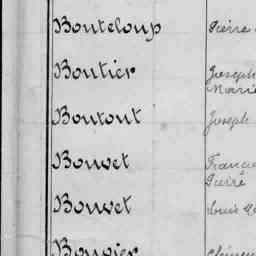 Bouteloup Pierre
Boutier Joseph
Marie
Boutout Joseph
Bouvet
Pierre
Bouvet Louis
Bouvier